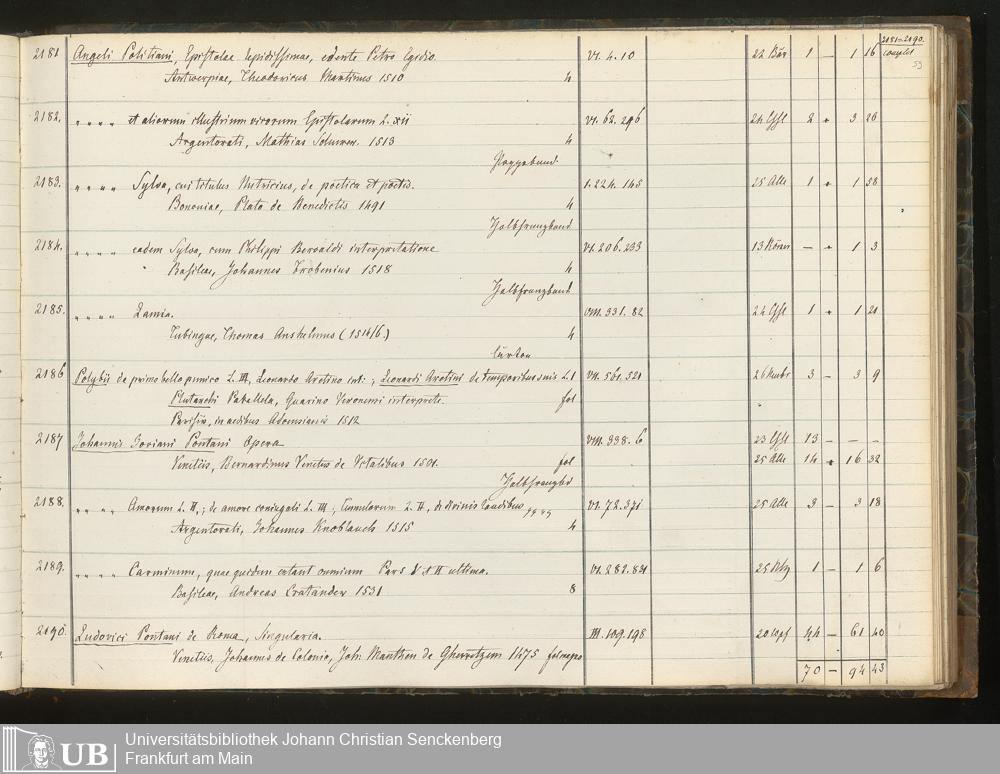 2181-2190.
complet
59
2181 Angeli Politiani, Epistolae lepidissimae, edente Petro Egidio. VI. 4. 10 22 Bär 1 – 1 16
Antwerpiae, Theodoricus Martinus 1510 4
2182. " " " " et aliorum illustrium virorum Epistolarum L. xii VI. 62. 296 2 " 3 26
Argentorati, Mathias Schurer. 1513 4
Pappband
2183. " " " " Sylva, cui titulus Nutricius, de poetica et poetis. 1. 224. 145 25 Alle 1 " 1 58
Bononiae, Plato de Benedictis 1491 4
Halbfranzband
2184. " " " " eadem Sylva, cum Philippi Beroaldi interpretatione VI. 206. 233 – " 1 3
Basileae, Johannes Frobenius 1518 4
Halbfranzband
2185. " " " " Lamia. VIII. 331. 82 1 " 1 21
Tubingae, Thomas Anshelmus (1514/6.) 4
Carton
2186 Polybii de primo bello punico L. III, Leonardo Aretino int.; Leonardi Aretini de temporibus suis L. I VII. 561. 321 3 – 3 9
Plutarchi Parallela, Guarino Veronensi interprete. fol
Parisiis, in aedibus Ascensianis 1512
2187 Johannis Joviani Pontani Opera VIII. 338. 6 13 – – –
Venetiis, Bernardinus Venetus de Vitalibus 1501. fol 25 Alle 14 " 16 32
Halbfranzbd
2188. " " " " Amorum L. II,; de amore conjugali L. III; Tumulorum L. II, de divinis laudibus VI. 72. 371 25 Alle 3 – 3 18
Argentorati, Johannes Knoblauch 1515 4
2189. " " " " Carminum, quae quidem extant omnium Pars I et II ultima. VI. 282. 831 1 – 1 6
Basileae, Andreas Cratander 1531 8
2190. Ludovici Pontani de Roma, Singularia. III. 109. 198 44 – 61 40
Venetiis, Johannis de Colonia, Joh. Manthen de Gherretzem 1475 fol
70 – 94 43
UB
Universitätsbibliothek Johann Christian Senckenberg
Frankfurt am Main